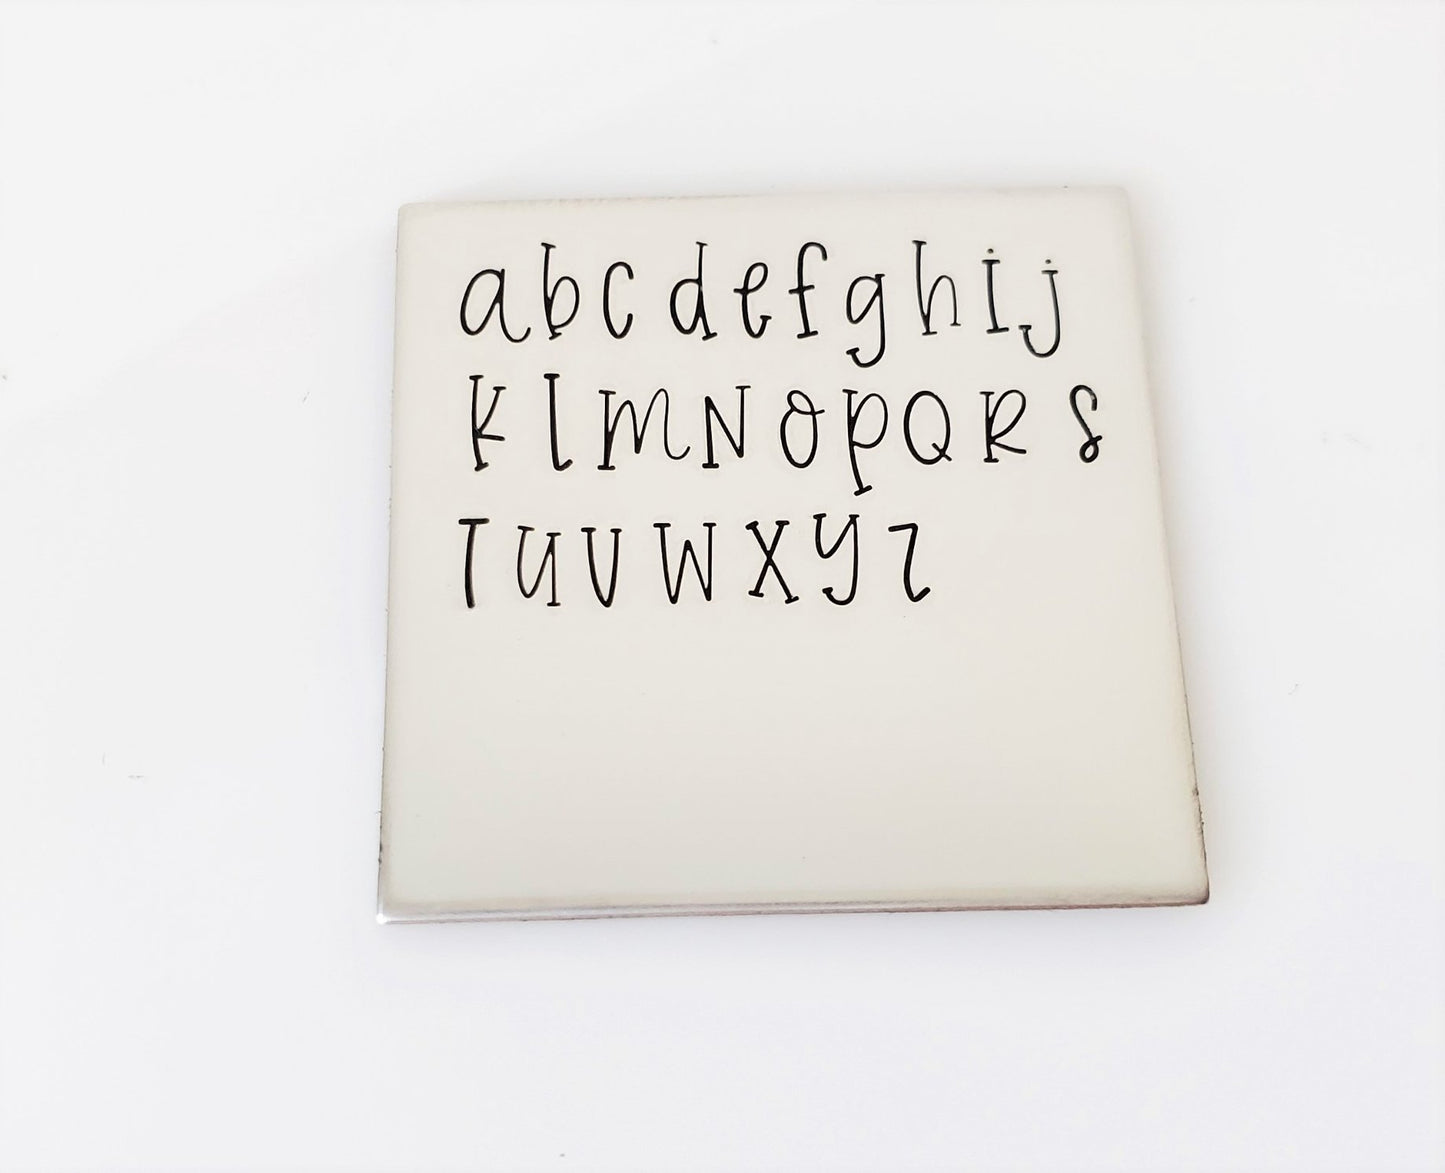 abcdefghij
klmNopQRS
TUVWXYZ